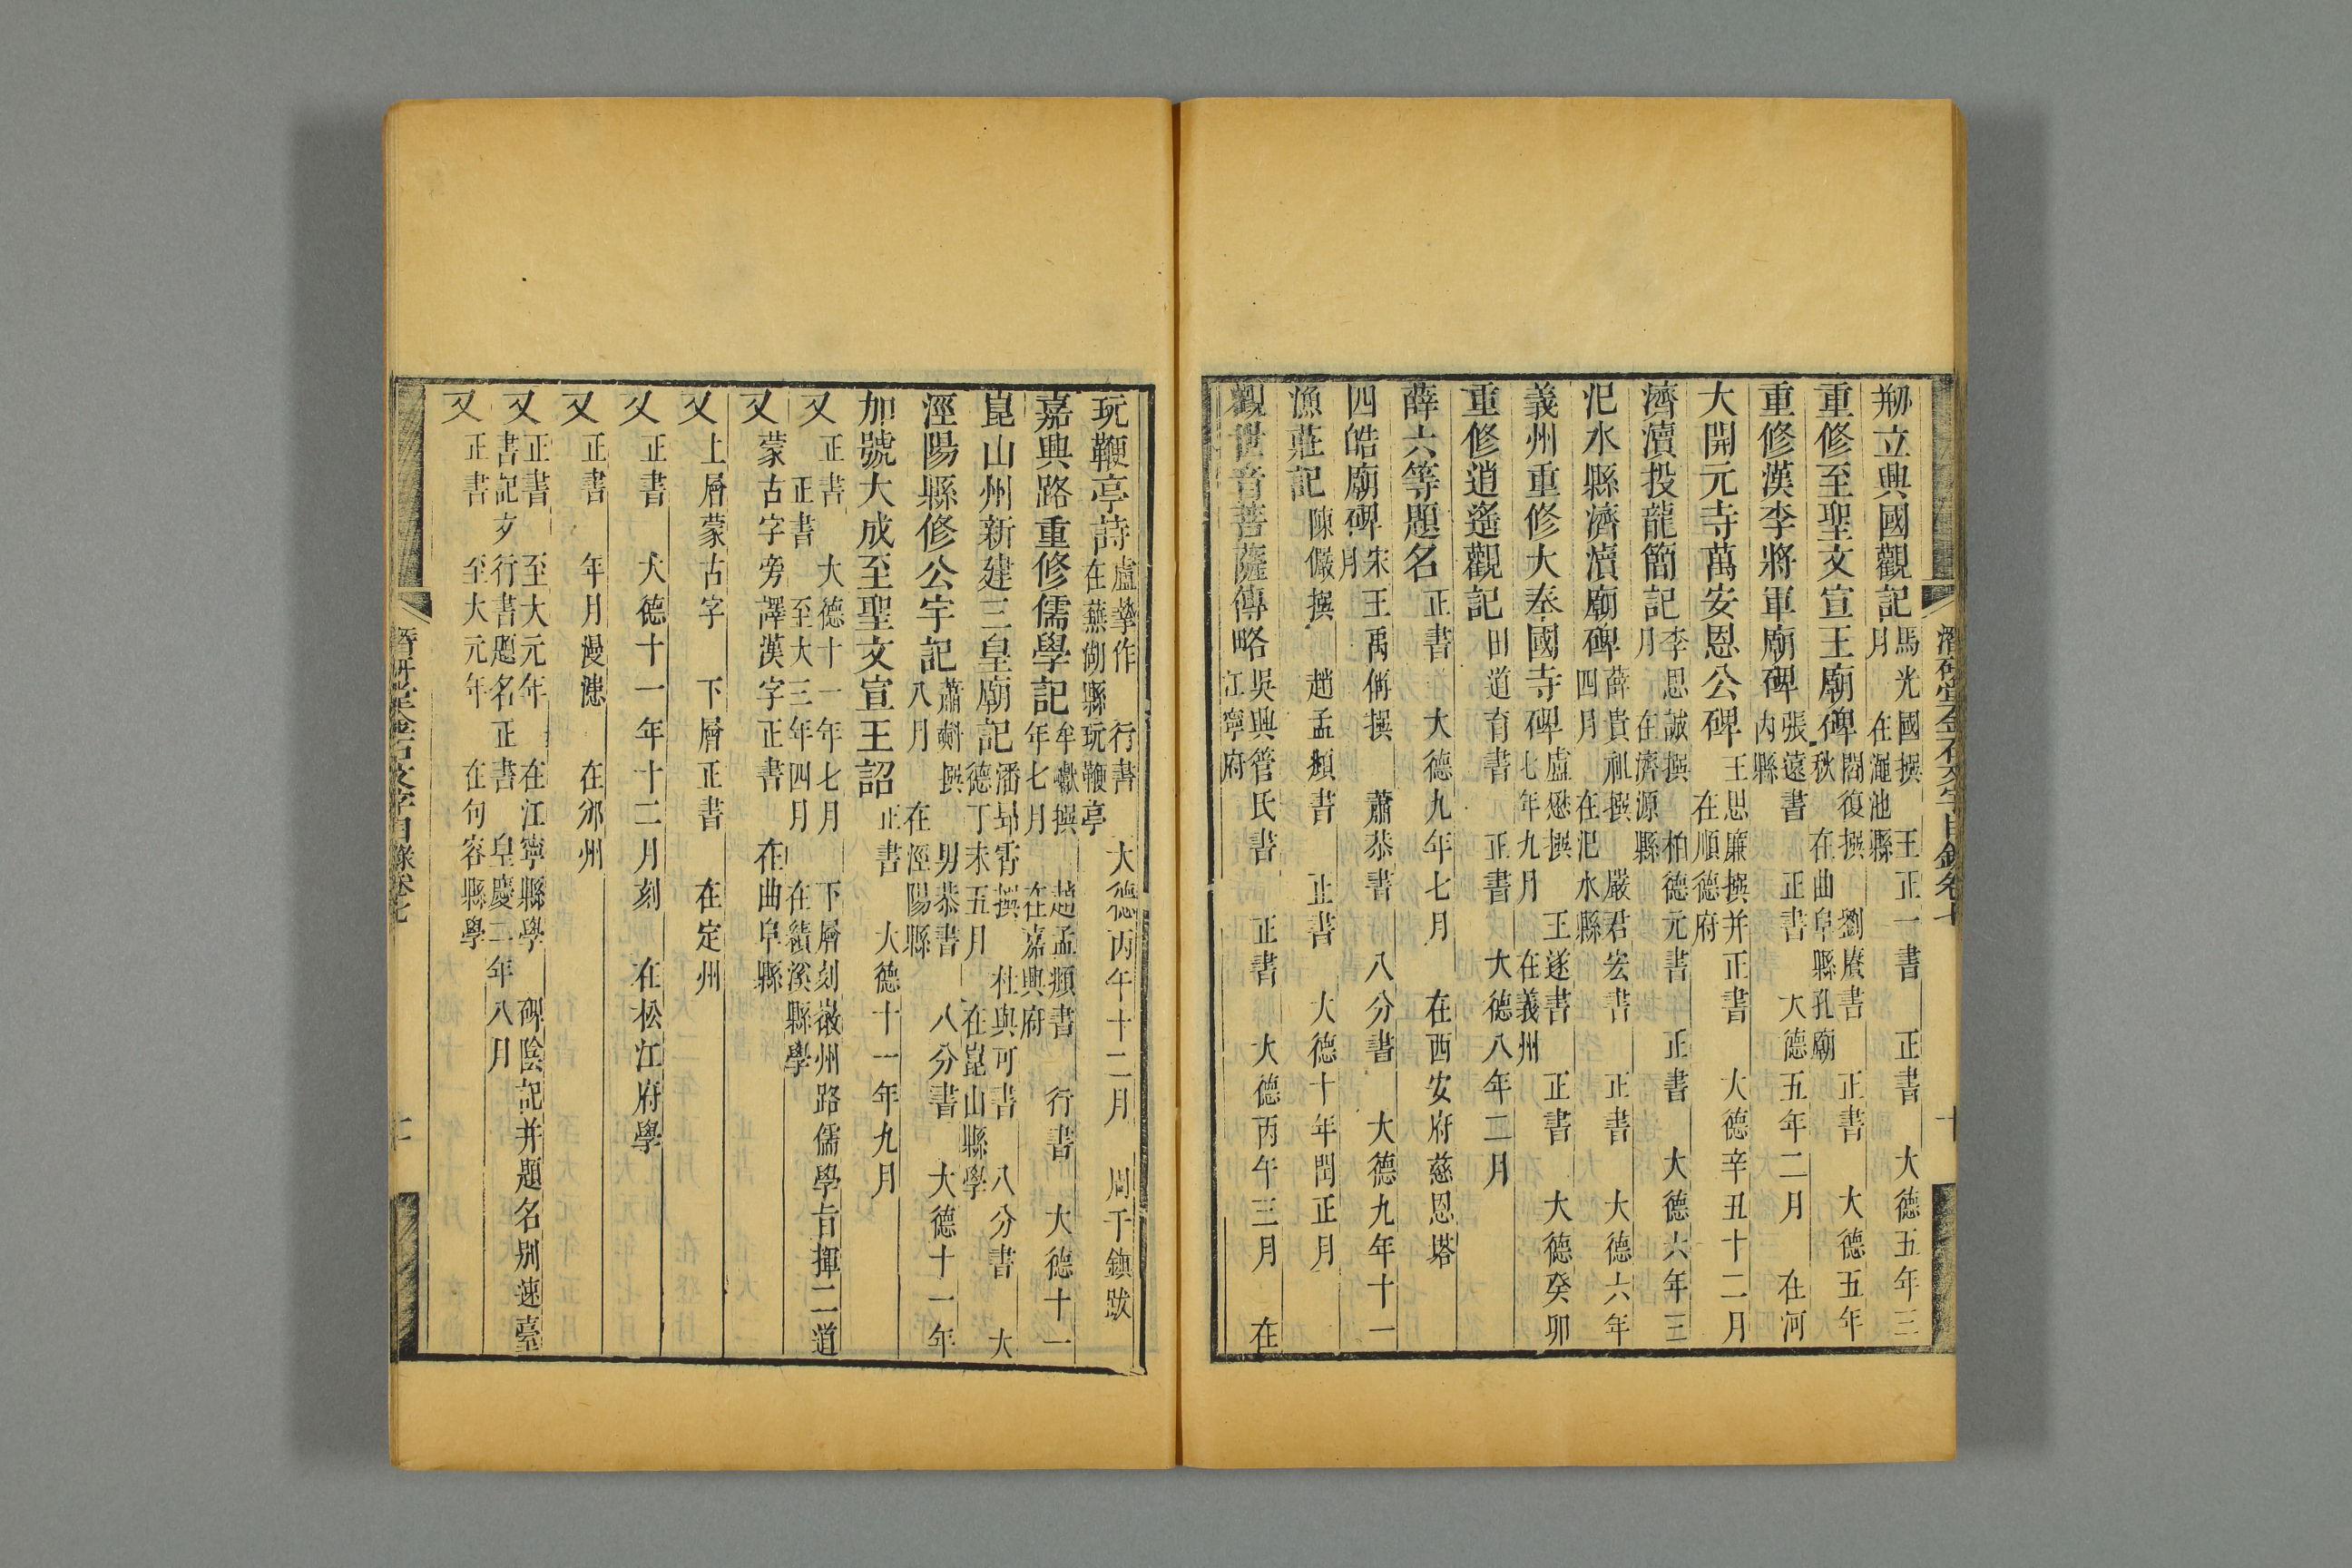 潛研堂金石文字目錄卷七　十
剏立興國觀記　馬光國撰　王正一書　正書　大德五年三
月　在澠池縣
重修至聖文宣王廟碑　閻復撰　劉賡書　正書　大德五年
秋　在曲阜縣孔廟
重修漢李將軍廟碑　張遠書　正書　大德五年二月　在河
內縣
大開元寺萬安恩公碑　王思廉撰并正書　大德辛丑十二月
在順德府
濟瀆投龍簡記　李思誠撰　柏德元書　正書　大德六年三
月　在濟源縣
汜水縣濟瀆廟碑　薛貴祖撰　嚴君宏書　正書　大德六年
四月　在汜水縣
義州重修大奉國寺碑　盧懋撰　王遂書　正書　大德癸卯
七年九月　在義州
重修逍遙觀記　田道育書　正書　大德八年二月
薛六等題名　正書　大德九年七月　在西安府慈恩塔
四皓廟碑　宋王禹偁撰　蕭恭書　八分書　大德九年十一
月
漁莊記　陳儼撰　趙孟頫書　正書　大德十年閏正月
觀世音菩薩傳略　吳興管氏書　正書　大德丙午三月　在
江寧府
玩鞭亭詩　盧摯作　行書　大德丙午十二月　周千鎮跋
在蕪湖縣玩鞭亭
嘉興路重修儒學記　牟巘撰　趙孟頫書　行書　大德十一
年七月　在嘉興府
崑山州新建三皇廟記　潘昂霄撰　杜與可書　八分書　大
德丁未五月　在崑山縣學
涇陽縣修公宇記　蕭㪺撰　男恭書　八分書　大德十一年
八月　在涇陽縣
加號大成至聖文宣王詔　正書　大德十一年九月
又　正書　大德十一年七月　下層刻徽州路儒學旨揮二道
正書　至大三年四月　在績溪縣學
又　蒙古字旁譯漢字正書　在曲阜縣
又　上層蒙古字　下層正書　在定州
又　正書　大德十一年十二月刻　在松江府學
又　正書　年月漫漶　在邠州
又　正書　至大元年　在江寧縣學　碑陰記并題名別速臺
書記文行書題名正書　皇慶二年八月
又　正書　至大元年　在句容縣學
潛研堂金石文字目錄卷七